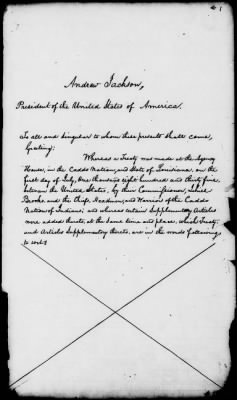 1
Andrew Jackson,
President of the United States of America.
To all and singular to whom these presents shall come,
Greeting:
Whereas a Treaty was made at the Agency
House, in the Caddo Nation, and State of Louisiana, on the
first day of July, One thousand eight hundred and thirty five,
between the United States, by their Commissioner, Jehiel
Brooks and the Chiefs, Headmen, and Warriors of the Caddo
Nation of Indians; and whereas certain Supplementary Articles
were added thereto, at the same time and place, which Treaty
and Articles Supplementary thereto, are in the words following
to wit: